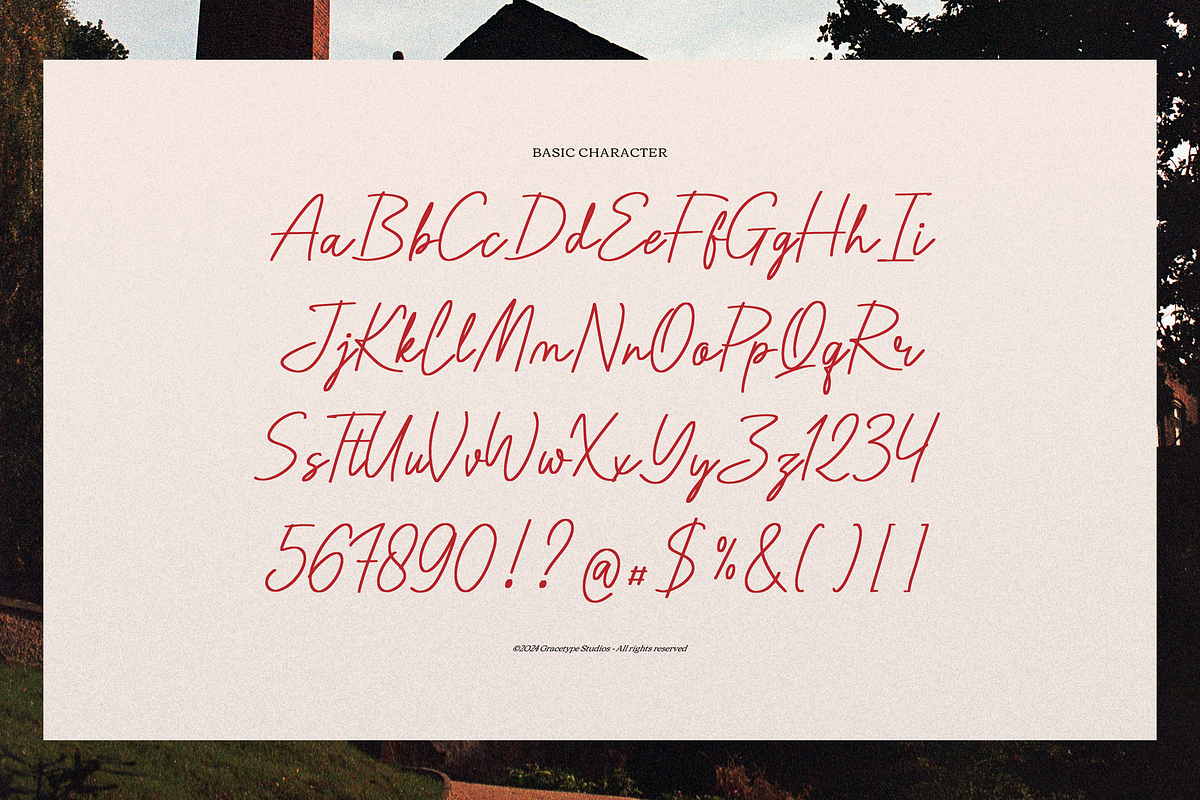 BASIC CHARACTER
AaBbCcDdEeFfGgHhIi
JjKkLlMmNnOoPpQqRr
SsTtUuVvWwXxYyZz1234
567890!?@#$%&()[]
©2024 Gracetype Studios - All rights reserved